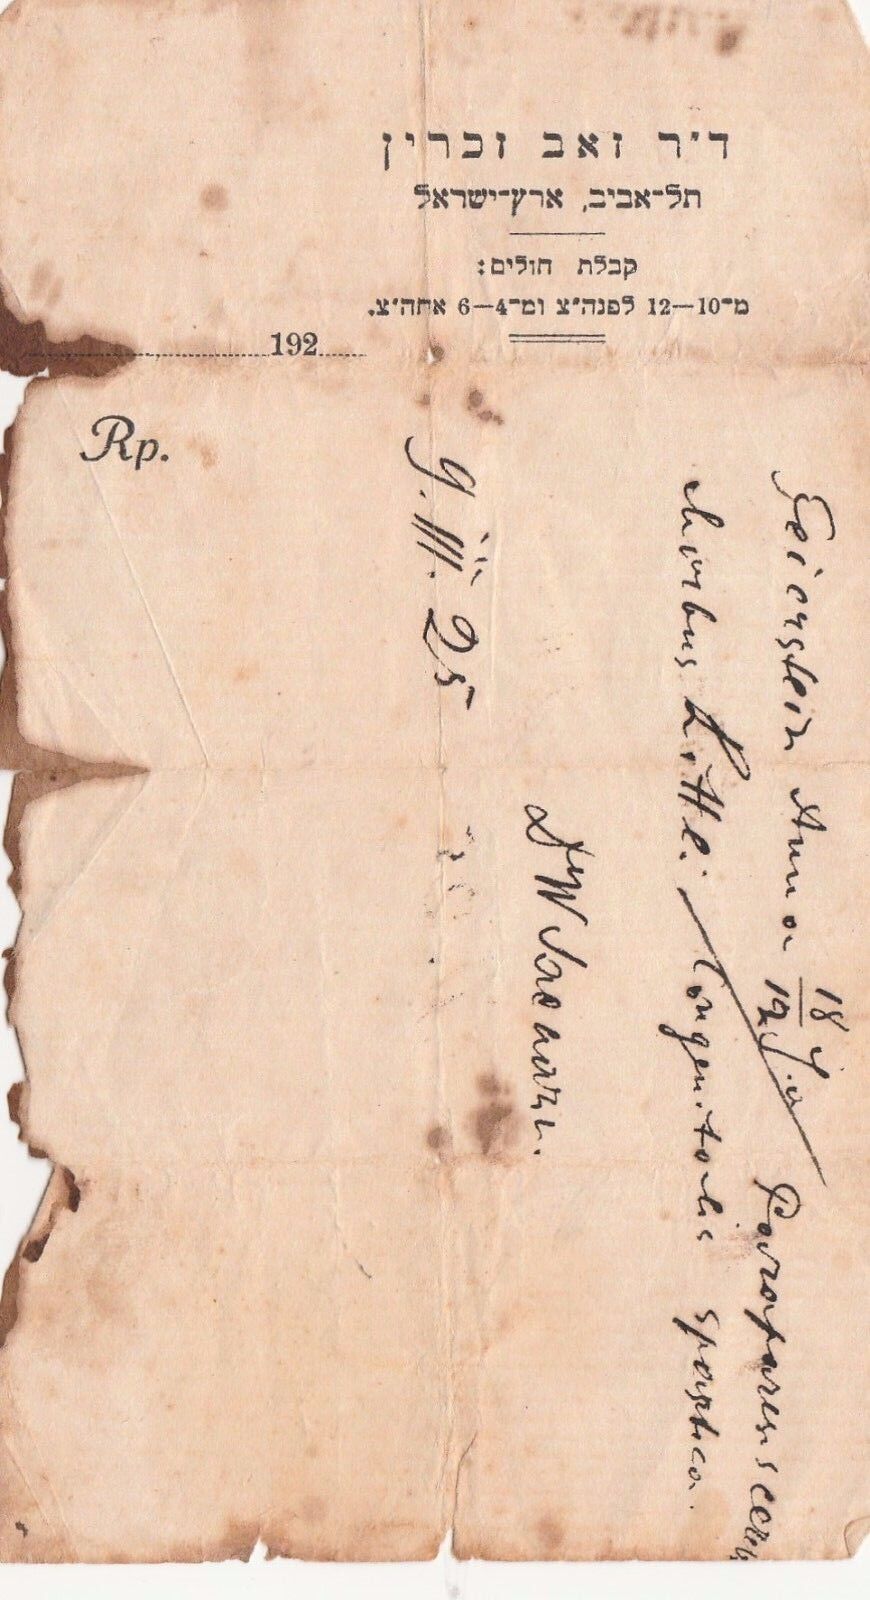 ד״ר זאב זכרין
תל־אביב, ארץ־ישראל
קבלת חולים:
מ־10—12 לפנה״צ ומ־4—6 אחה״צ.
192
Rp.
Feierstein Anna 18/12 J. a Paraparesis cereb
Morbus Littli / Congenitalis spastica.
Dr W Sacharin.
9. III. 25